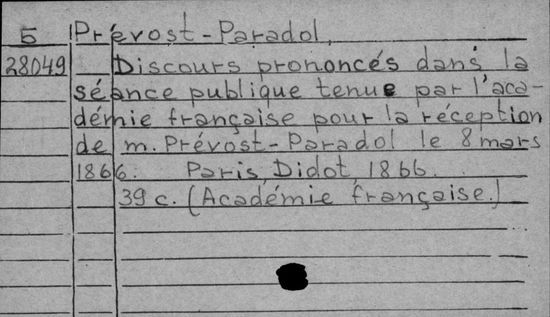 5 Prévost-Paradol,
28049 Discours prononcés dans la
séance publique tenue par l'aca-
démie française pour la réception
de m. Prévost-Paradol le 8 mars
1866. Paris, Didot, 1866.
39 c. (Académie française.)